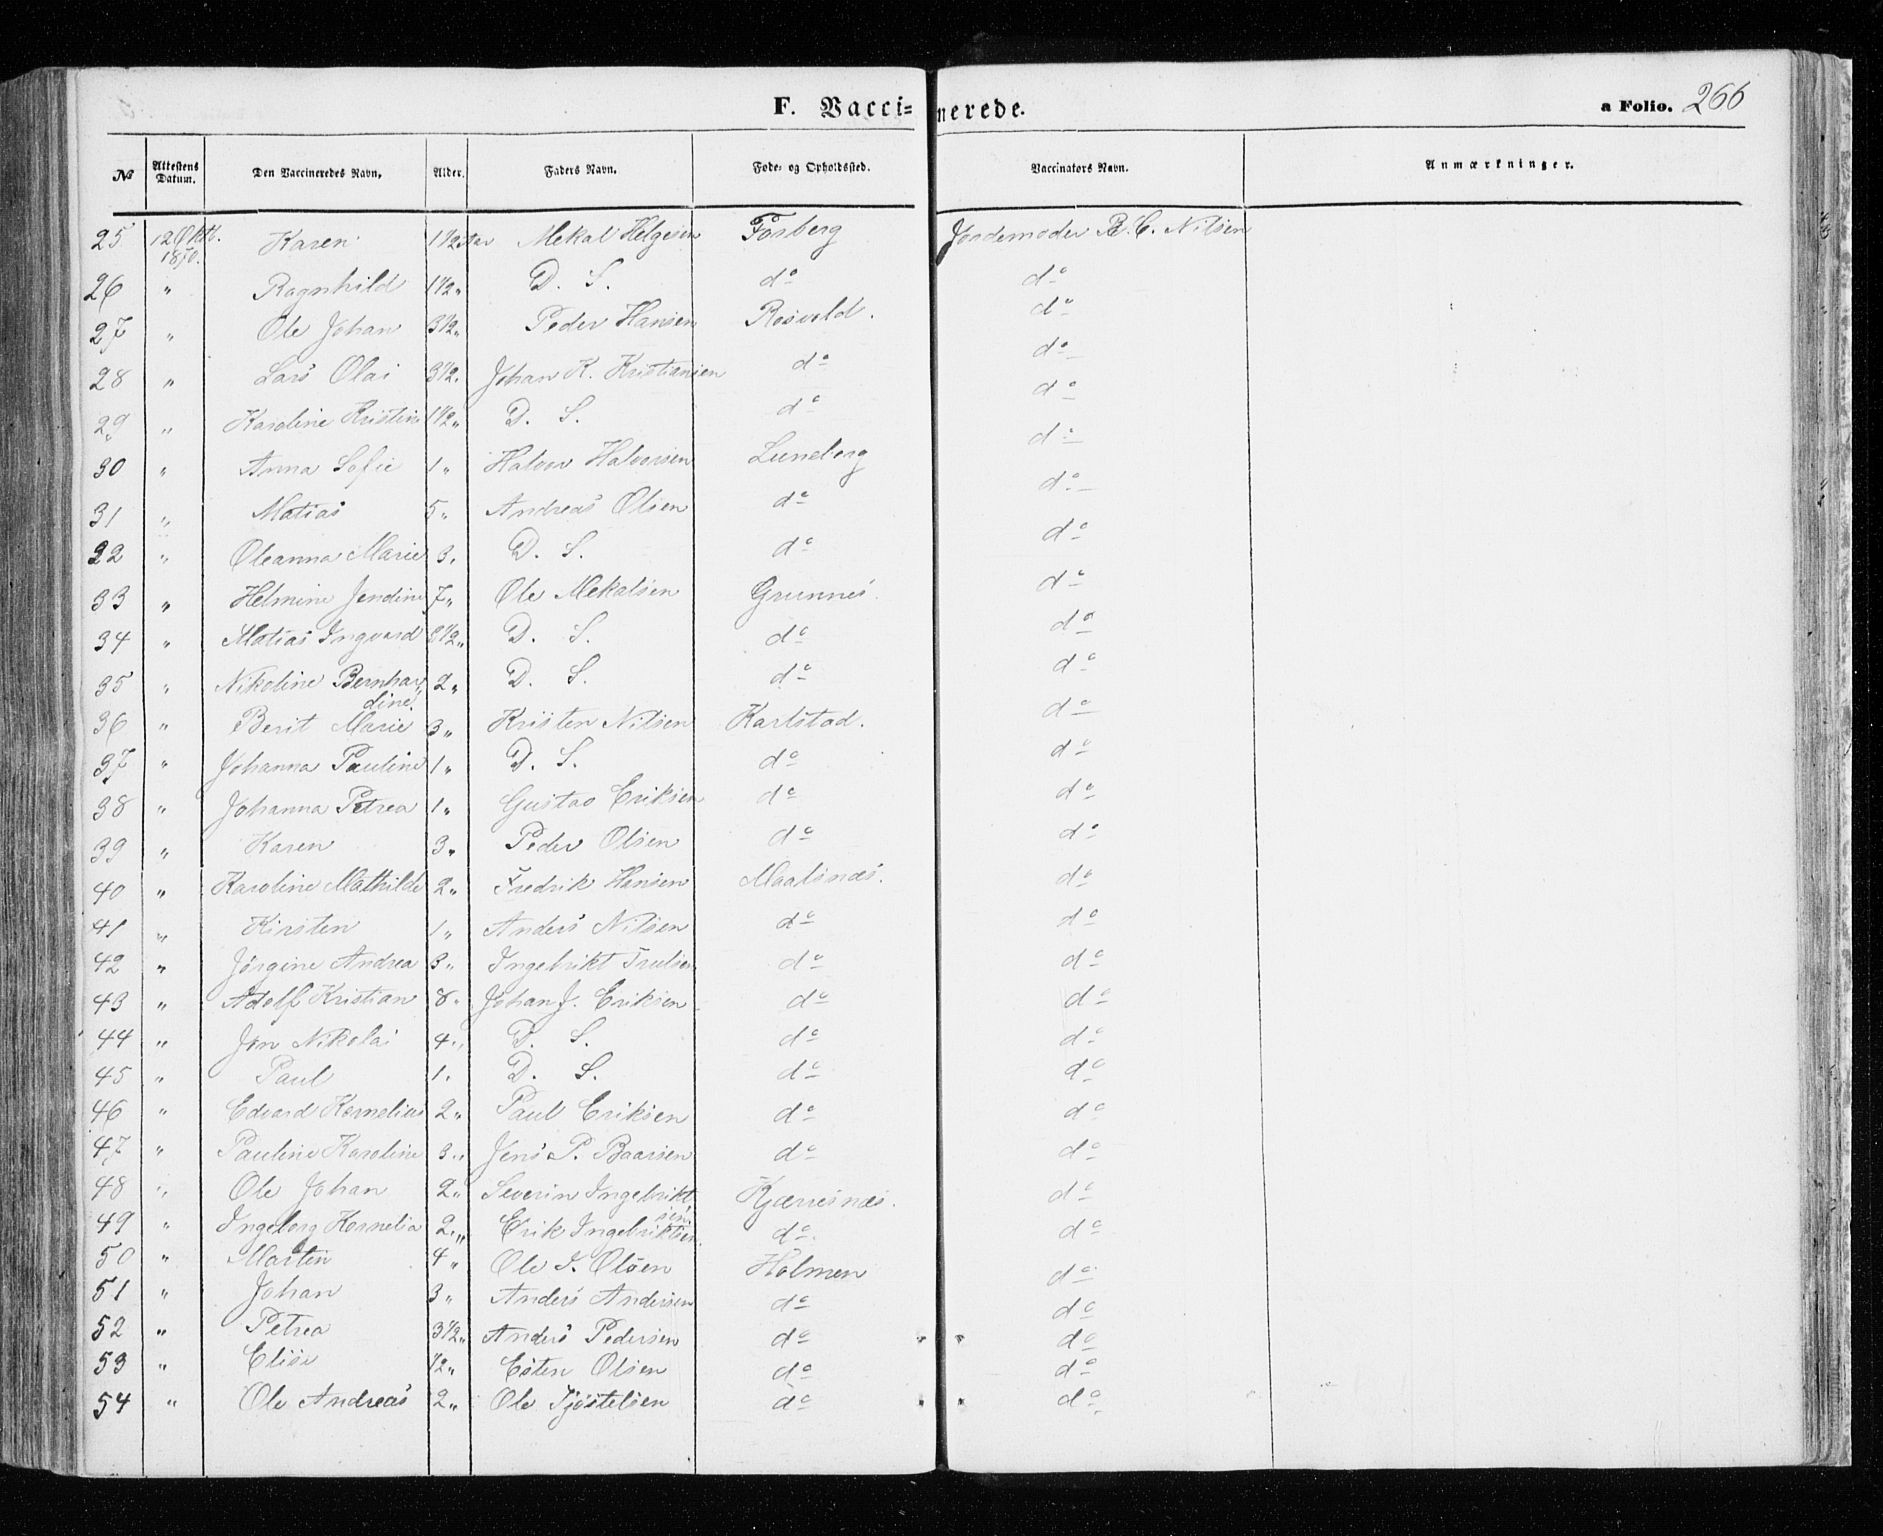 F. Vaccinerede.
a Folio. 266
№ Attestens Datum. Den Vaccineredes Navn. Alder. Faders Navn. Føde- og Opholdssted. Vaccinators Navn. Anmærkninger.
25 12 Oktb. 1850. Karen 1 1/2 Aar Mekal Helgesen Fosberg Jordemoder B. C. Nilsen
26 " Ragnhild 1 1/2 " D. S. do do
27 " Ole Johan 3 1/2 " Peder Hansen Rosvold. do
28 " Lars Olai 3 1/2 " Johan K. Kristiansen do do
29 " Karoline Kristine 1 1/2 " D. S. do do
30 " Anna Sofie 1 " Halvor Halvorsen Luneborg do
31 " Matias 5 " Andreas Olsen do do
32 " Oleanna Marie 3 " D. S. do do
33 " Helmine Jendine 7 " Ole Mekalsen Grunnes. do
34 " Matias Ingvard 1/2 " D. S. do do
35 " Nikoline Bernhardine 2 " D. S. do do
36 " Berit Marie 3 " Kristen Nilsen Karlstad. do
37 " Johanna Pauline 1 " D. S. do do
38 " Johanna Petrea 1 " Gustav Eriksen do do
39 " Karen 3 " Peder Olsen do do
40 " Karoline Mathilde 2 " Fredrik Hansen Maalsnæs. do
41 " Kirsten 1 " Anders Nilsen do do
42 " Jørgine Andrea 3 " Ingebrikt Trulsen do do
43 " Adolf Kristian 8 " Johan J. Eriksen do do
44 " Jon Nikolai 4 " D. S. do do
45 " Paul 1 " D. S. do do
46 " Edvard Kornelius 2 " Paul Eriksen do do
47 " Pauline Karoline 3 " Jens P. Baarsen do do
48 " Ole Johan 2 " Severin Ingebriktsen Kjærresnæs. do
49 " Ingeborg Kornelia 2 " Erik Ingebriktsen do do
50 " Martin 4 " Ole I. Olsen Holmen do
51 " Johan 3 " Anders Andersen do do
52 " Petrea 3 1/2 " Anders Pedersen do do
53 " Elise 1/2 " Esten Olsen do do
54 " Ole Andreas 2 " Ole Tjøstelsen do do